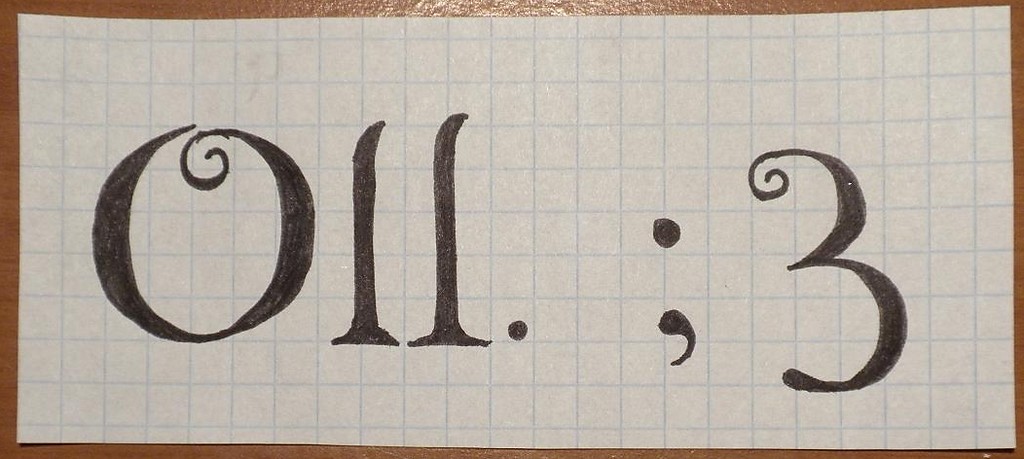 Oll. ;3